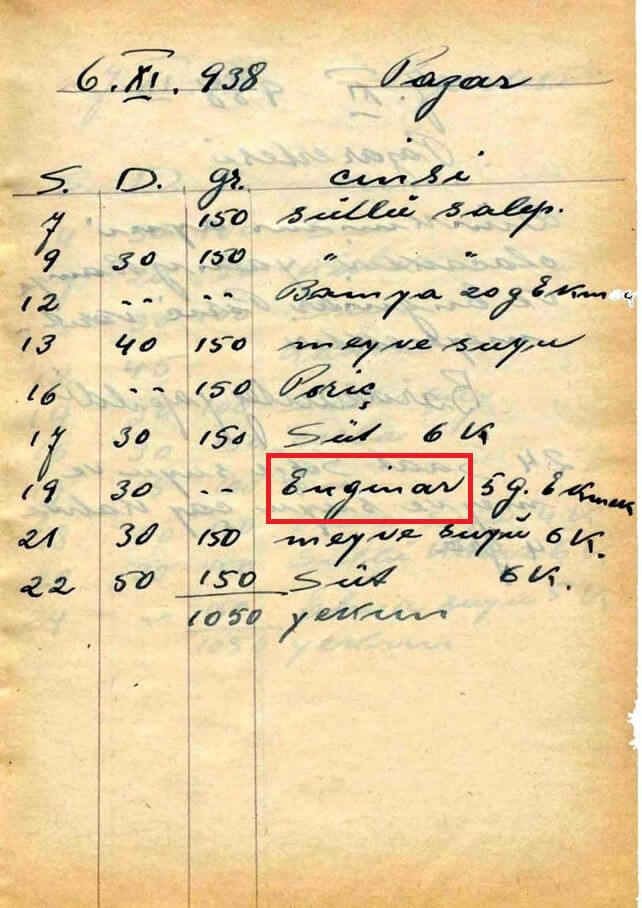 6. XI. 938 Pazar
S. D. gr. cinsi
7 150 sütlü salep.
9 30 150 " "
12 -- -- Bamya 20 g Ekmek
13 40 150 meyve suyu
16 -- 150 Poriç
17 30 150 Süt 6 K
19 30 -- Enginar 5 g. Ekmek
21 30 150 meyve suyu 6 K.
22 50 150 Süt 6 K.
1050 yekun